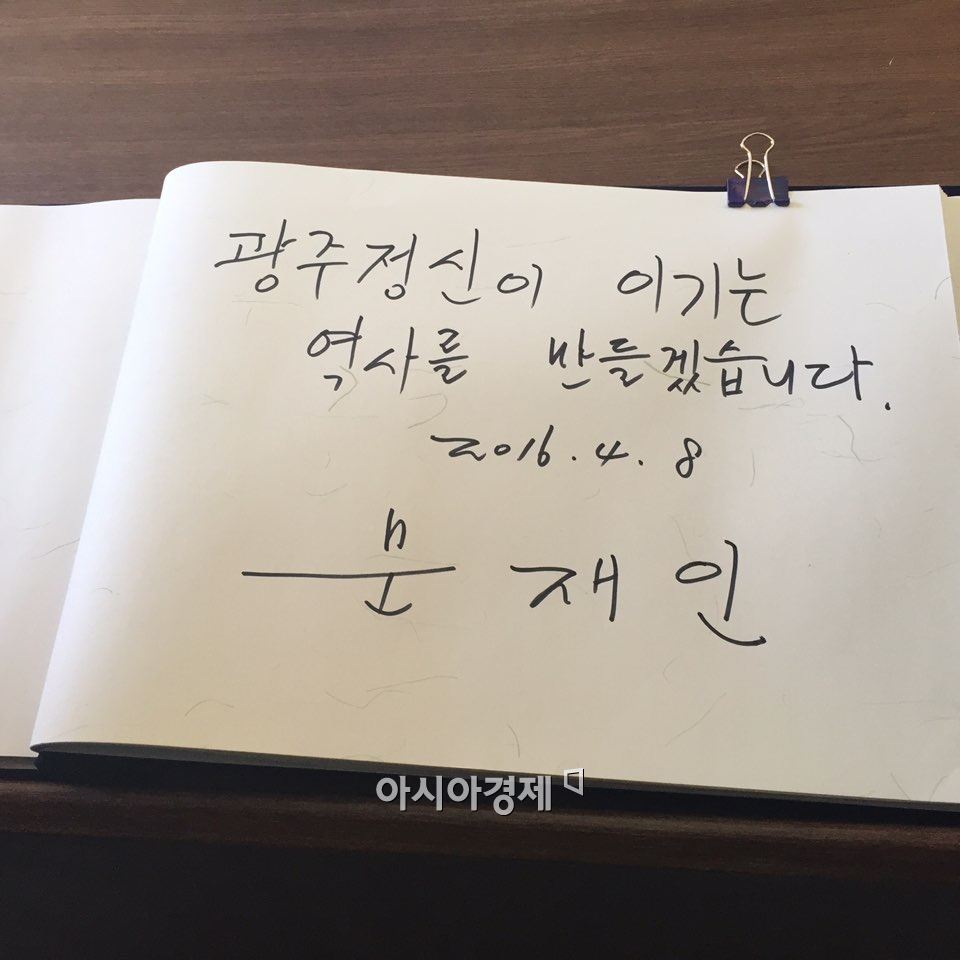 광주정신이 이기는
역사를 만들겠습니다.
2016. 4. 8
문재인
아시아경제